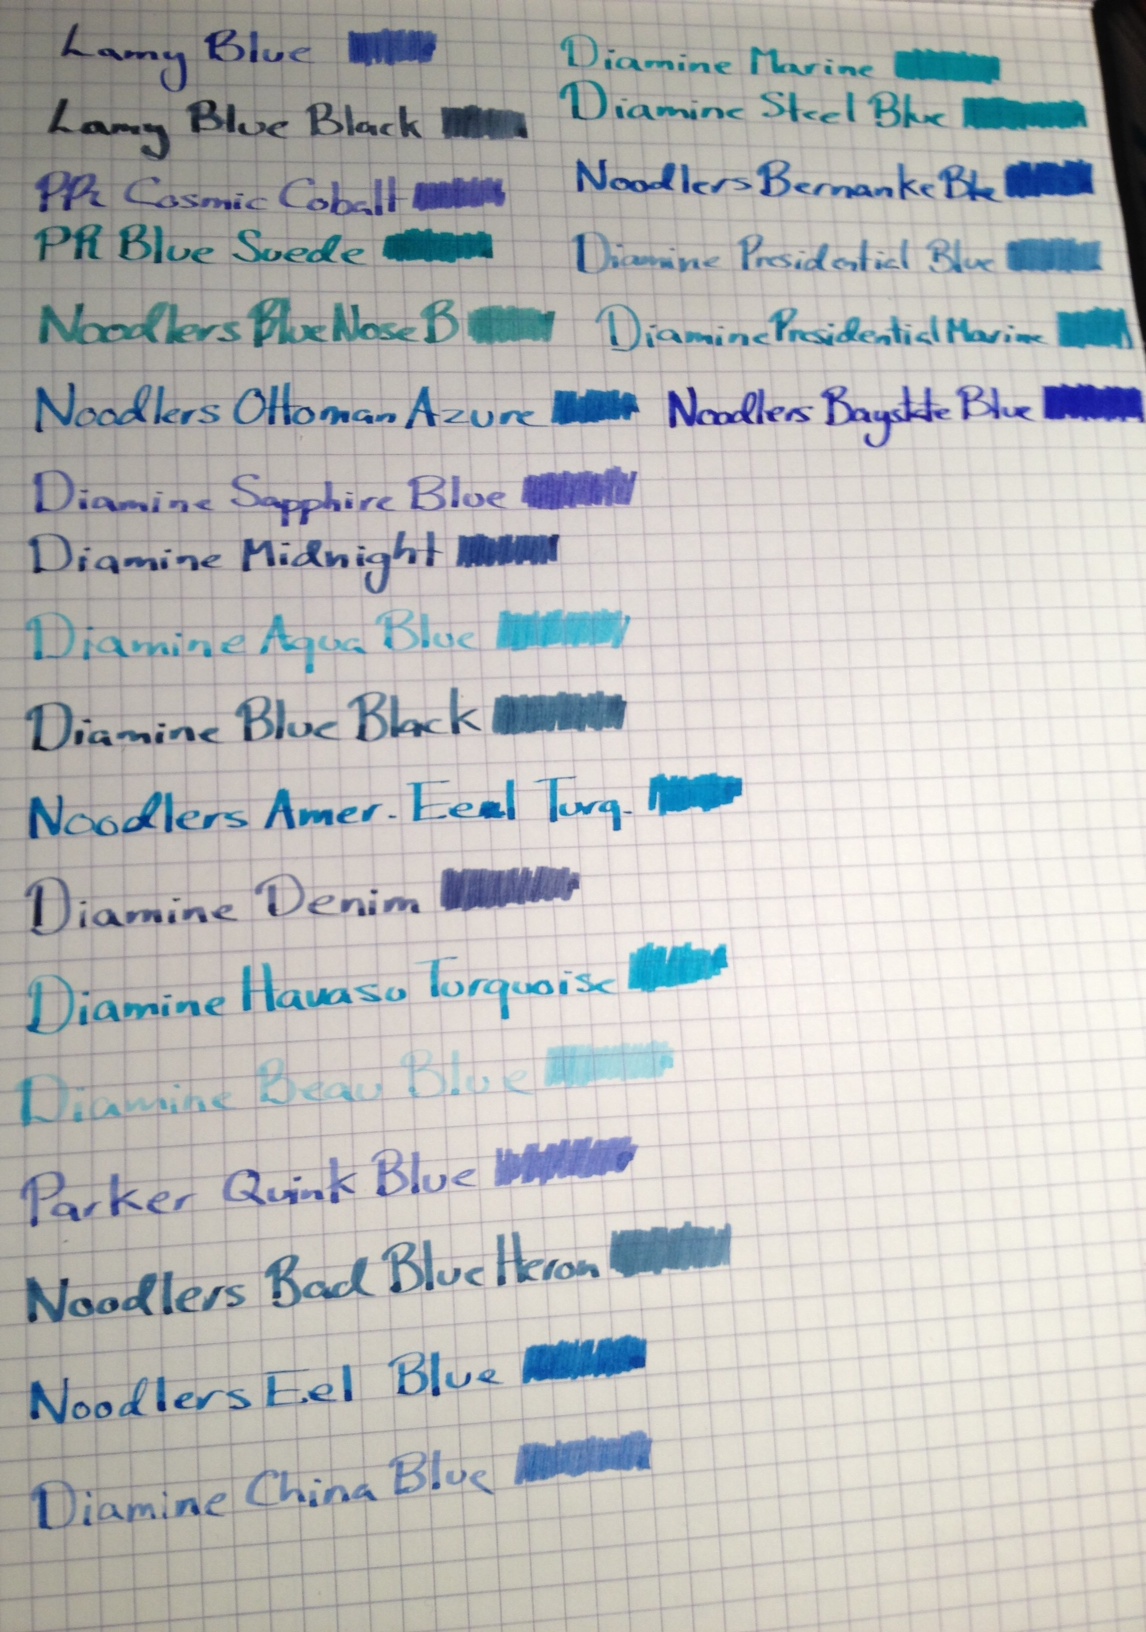 Lamy Blue
Lamy Blue Black
PR Cosmic Cobalt
PR Blue Suede
Noodlers Blue Nose B
Noodlers Ottoman Azure
Diamine Sapphire Blue
Diamine Midnight
Diamine Aqua Blue
Diamine Blue Black
Noodlers Amer. Eeel Turq.
Diamine Denim
Diamine Havasu Turquoise
Diamine Beau Blue
Parker Quink Blue
Noodlers Bad Blue Heron
Noodlers Eel Blue
Diamine China Blue
Diamine Marine
Diamine Steel Blue
Noodlers Bernanke Ble
Diamine Presidential Blue
Diamine Presidential Marine
Noodlers Baystate Blue